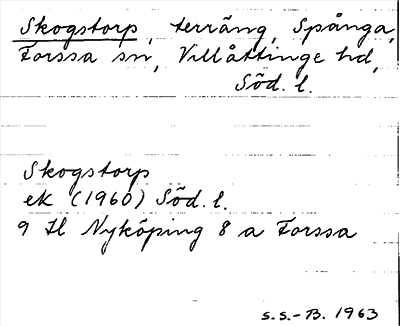 Skogstorp, terräng, Spånga,
Forssa sn, Villåttinge hd,
Söd. l.
Skogstorp
ek (1960) Söd. l.
9 H Nyköping 8 a Forssa
S.S.-B. 1963